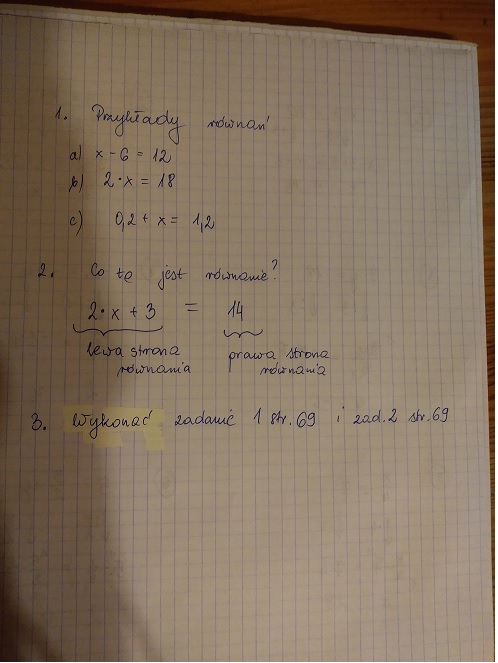 1. Przykłady równań
a) x - 6 = 12
b) 2 · x = 18
c) 0,2 + x = 1,2
2. Co tę jest równanie?
2 · x + 3 = 14
lewa strona równania
prawa strona równania
3. Wykonać zadanie 1 str. 69 i zad. 2 str. 69